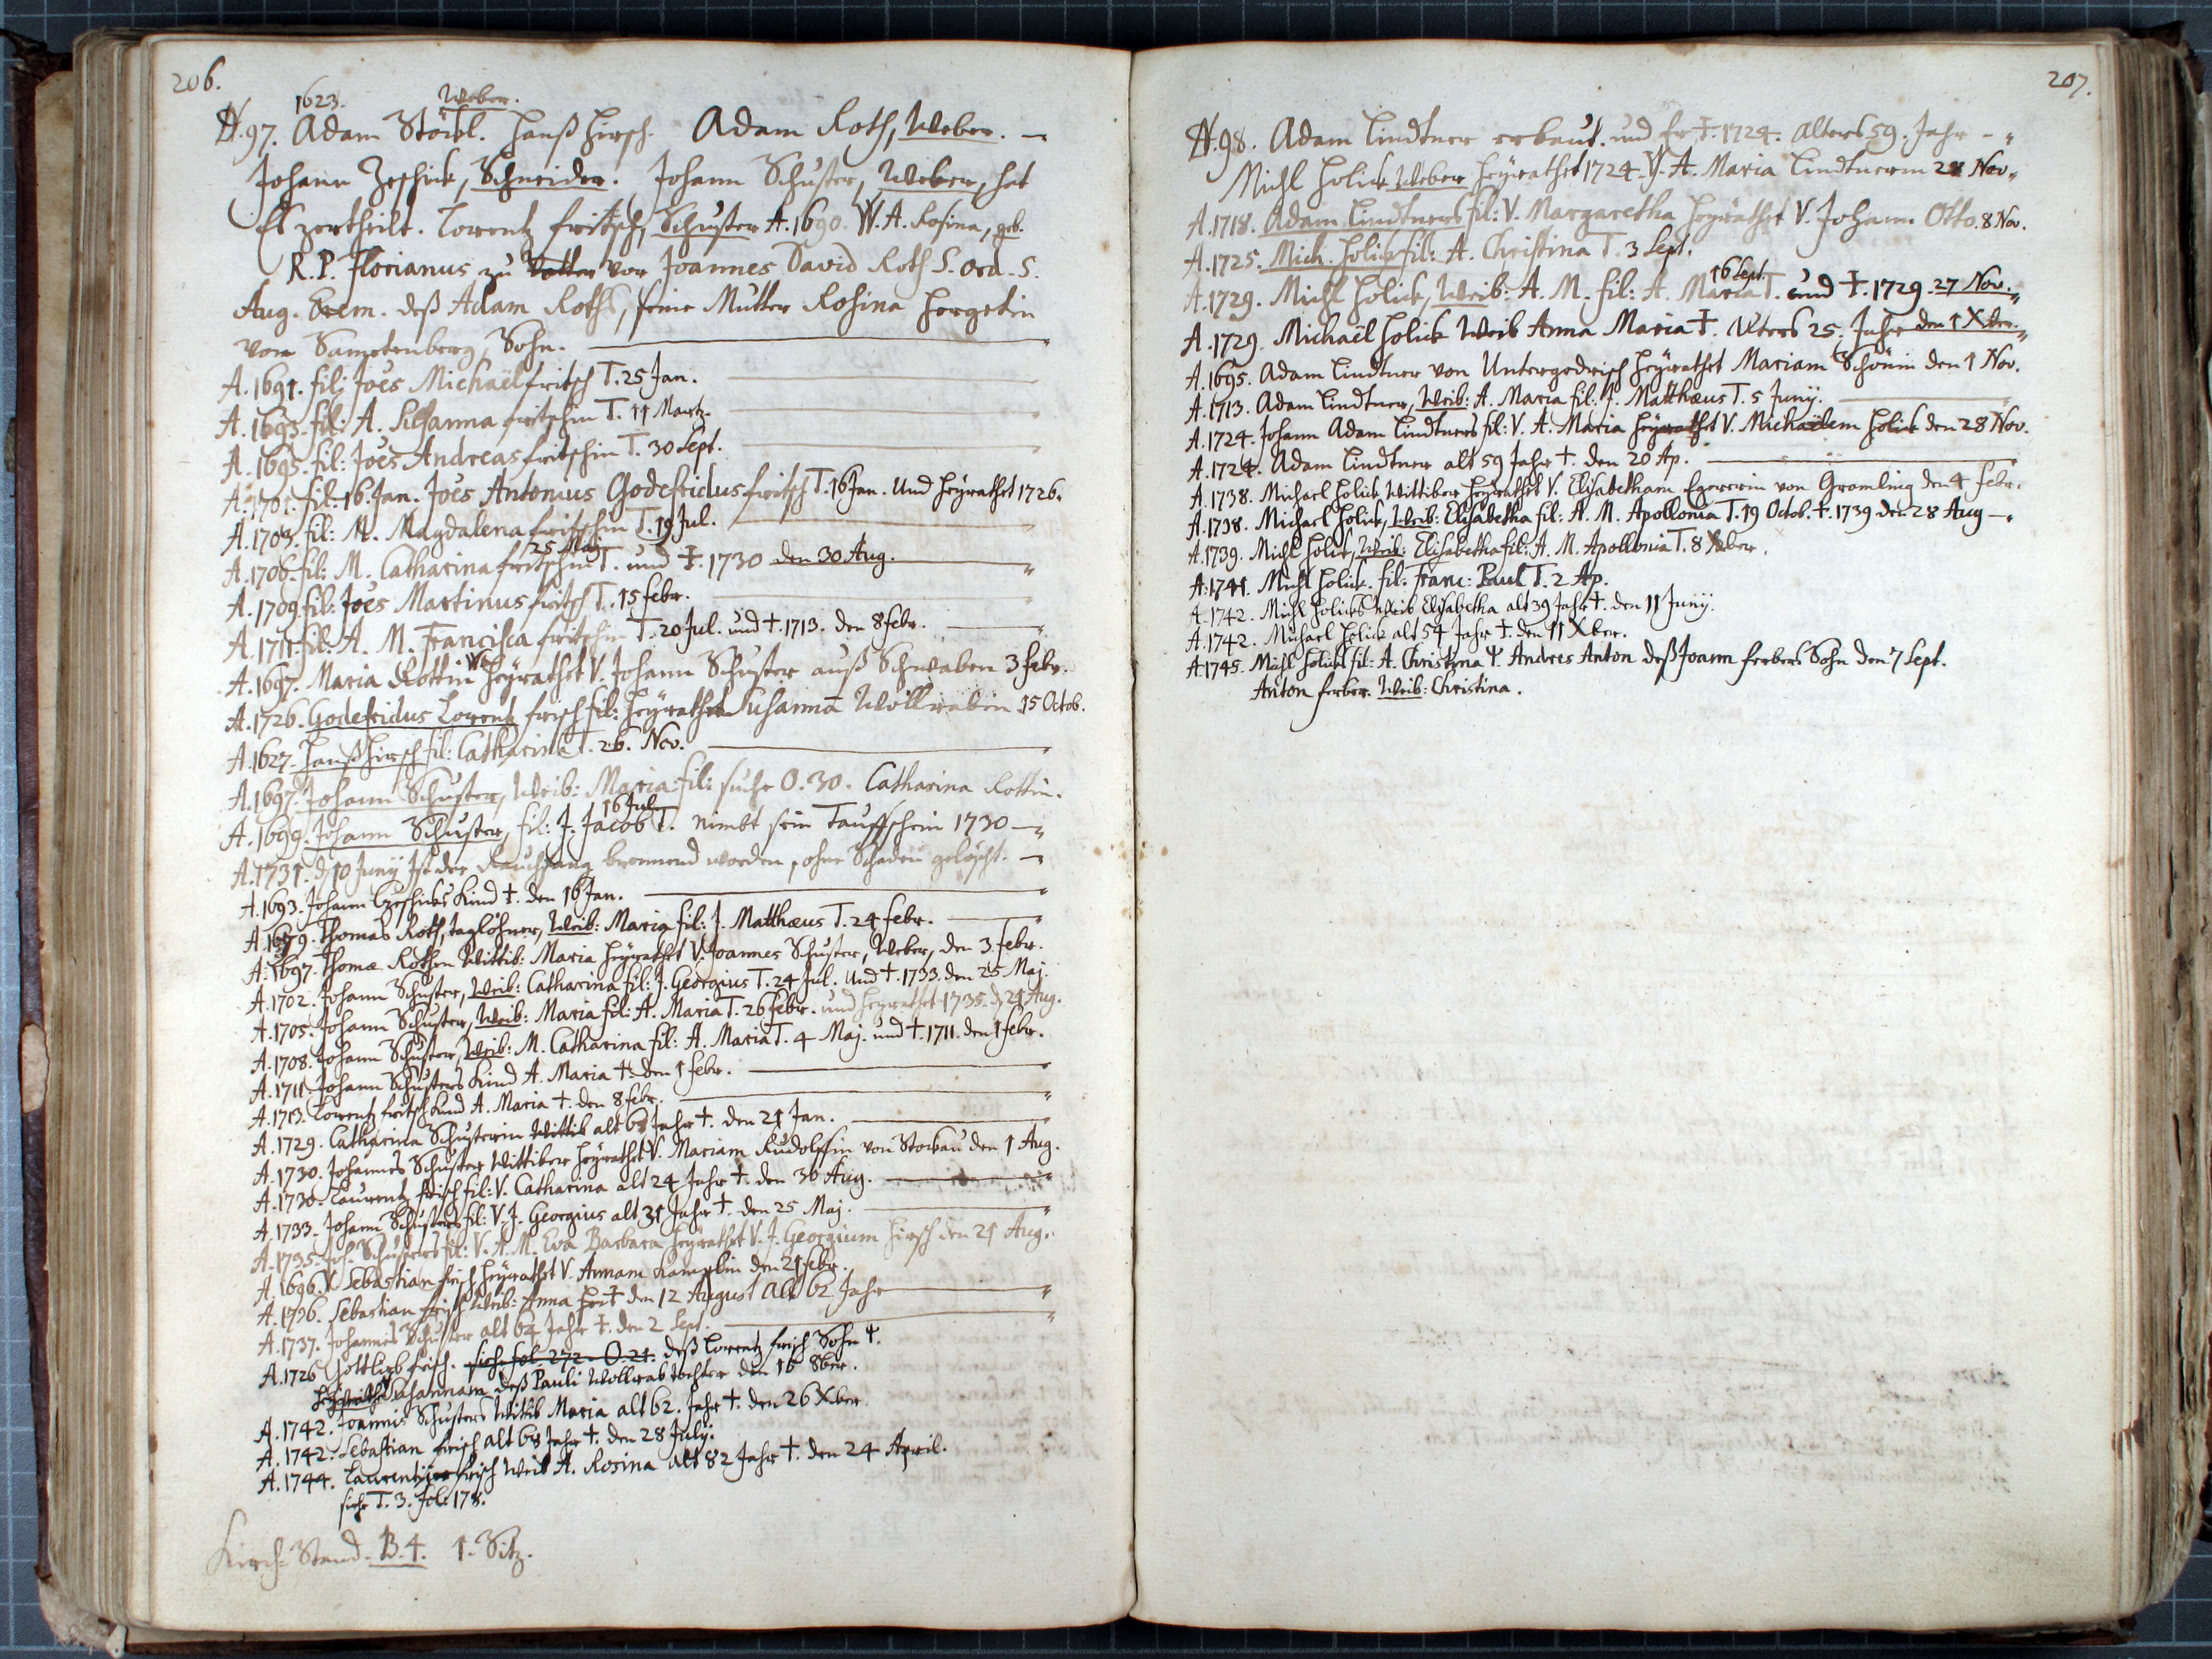 206.
1623. Weber.
N. 97. Adam Störbl. Hanß Hirsch. Adam Roth, Weber. —
Johann Zeschick, Schneider. Johann Schuster, Weber, hat
Es zertheilt. Lorentz fritsch, Schuster A. 1690. W. A. Rosina, geb.
R. P. Florianus zu vor Joannes David Roth S. Ord. S.
Aug. Erem. deß Adam Roths, seine Mutter Rosina Hergetin
von Sametenberg, Sohn.
A. 1691. fil: Joës Michaël fritsch T. 25 Jan.
A. 1693. fil: A. Susanna fritschin T. 11 Martz.
A. 1695. fil: Joës Andreas fritschin T. 30 Sept.
A. 1701. fil: 16. Jan. Joës Antonius Godefridus fritsch T. 16 Jan. Und heÿrathet 1726.
A. 1703. fil: M. Magdalena fritschin T. 19 Jul.
25 Maÿ
A. 1706. fil: M. Catharina fritschin T. und †. 1730 den 30 Aug.
A. 1709. fil: Joës Martinus fritsch T. 15 febr.
A. 1711. fil: A. M. Francisca fritschin T. 20 Jul. und †. 1713. den 8 febr.
A. 1697. Maria Rottin heÿrathet V. Johann Schuster auß Schwaben 3 febr.
A. 1726. Godefridus Lorentz frisch fil: heÿrathet Susanna Wollrabin 15 Octob.
A. 1627. Hanß Hirsch fil: Catharina T. 26. Nov.
A. 1697. Johann Schuster, Weib: Maria fil: suche O. 30. Catharina Rottin.
16 Jul
A. 1699. Johann Schuster, fil: J. Jacob T. nimbt sein Tauffschein 1730
A. 1731. d 10 Junÿ Ist der Rauchfang brennend worden, ohne Schaden gelöscht.
A. 1693. Johann Czeschicks Kind †. den 16 Jan.
A. 1679. Thomas Roth, taglöhner, Weib: Maria fil: J. Matthæus T. 24 febr.
A. 1697. Thomæ Rothen Wittib: Maria heÿrathet V. Joannes Schuster, Weber, den 3. febr.
A. 1702. Johann Schuster, Weib: Catharina fil: J. Georgius T. 24 Jul. Und †. 1733. den 25 Maj.
A. 1705. Johann Schuster, Weib: Maria fil: A. Maria T. 26 febr. und heÿrathet 1735. d 21 Aug.
A. 1708. Johann Schuster, Weib: M. Catharina fil: A. Maria T. 4 Maj. und †. 1711. den 1 febr.
A. 1711. Johann Schusters Kind A. Maria †. den 1 febr.
A. 1713. Lorentz fritsch Kind A. Maria †. den 8 febr.
A. 1729. Catharina Schusterin Wittib alt Jahr †. den 21 Jan.
A. 1730. Johannes Schuster Wittiber heÿrathet V. Mariam Rudolffin von Stockau den 1 Aug.
A. 1730. Laurentz frisch fil: V. Catharina alt 24 Jahr †. den 30 Aug.
A. 1733. Johann Schusters fil: V. J. Georgius alt 31 Jahr †. den 25 Maj.
A. 1735. Joh. Schusters fil: V. A. M. Eva Barbara heÿrathet V. J. Georgium Hirsch den 21 Aug.
A. 1696. V. Sebastian frisch heÿrathet V. Annam den 21 febr.
A. 1736. Sebastian frisch Weib: Anna † den 12 August alt 62 Jahr
A. 1737. Johannes Schuster alt 64 Jahr †. den 2 Sept.
A. 1726 Gottlieb frisch. siehe fol. 272. O. 21. deß Lorentz frisch Sohn
heÿrathet Susannam deß Pauli Wollrab tochter den 15 8ber.
A. 1742. Joannis Schusters Wittib Maria alt 62. Jahr †. den 26 Xber.
A. 1742. Sebastian frisch alt 68 Jahr †. den 28 Julÿ.
A. 1744. Laurentz frisch Weib A. Rosina alt 82 Jahr †. den 24 April.
siehe T. 3. fol: 178.
Kirch=Stand. B. 4. 1. Sitz.
207.
N. 98. Adam Lindtner erbaut. und Er †. 1724. alters 59. Jahr
Michl Holick Weber heÿrathet 1724. V. A. Maria Lindtnerin 28 Nov.
A. 1718. Adam Lindtners fil: V. Margaretha heÿrathet V. Johann Otto. 8 Nov.
A. 1725. Mich. Holick fil: A. Christina T. 3 Sept.
16 Sept.
A. 1729. Michl Holick, Weib: A. M. fil: A. Maria T. und †. 1729. 27 Nov.
A. 1729. Michaël Holick Weib Anna Maria †. Alters 25. Jahr den 1 Xber.
A. 1695. Adam Lindtner von Untergodrisch heÿrathet Mariam Schönin den 1 Nov.
A. 1713. Adam Lindtner, Weib: A. Maria fil: J. Matthæus T. 5 Junÿ.
A. 1724. Johann Adam Lindtners fil: V. A. Maria heÿrathet V. Michaëlem Holick den 28 Nov.
A. 1724. Adam Lindtner alt 59 Jahr †. den 20 Ap.
A. 1738. Michael Holick Wittiber heÿrathet V. Elisabetham Egererin von Gramling den 4 febr.
A. 1738. Michael Holick, Weib: Elisabetha fil: A. M. Apollonia T. 19 Octob. †. 1739 den 28 Aug
A. 1739. Michl Holick, Weib: Elisabetha fil: A. M. Apollonia T. 8 Xber.
A. 1741. Michl Holick. fil: Franc: Paul T. 2 Ap.
A. 1742. Michl Holicks Weib Elisabetha alt 39 Jahr †. den 11 Junÿ.
A. 1742. Michael Holick alt 54 Jahr †. den 11 Xber.
A. 1745. Michl Holicks fil: A. Christina Andres Anton deß Joann ferbers Sohn den 7 Sept.
Anton ferber. Weib: Christina.